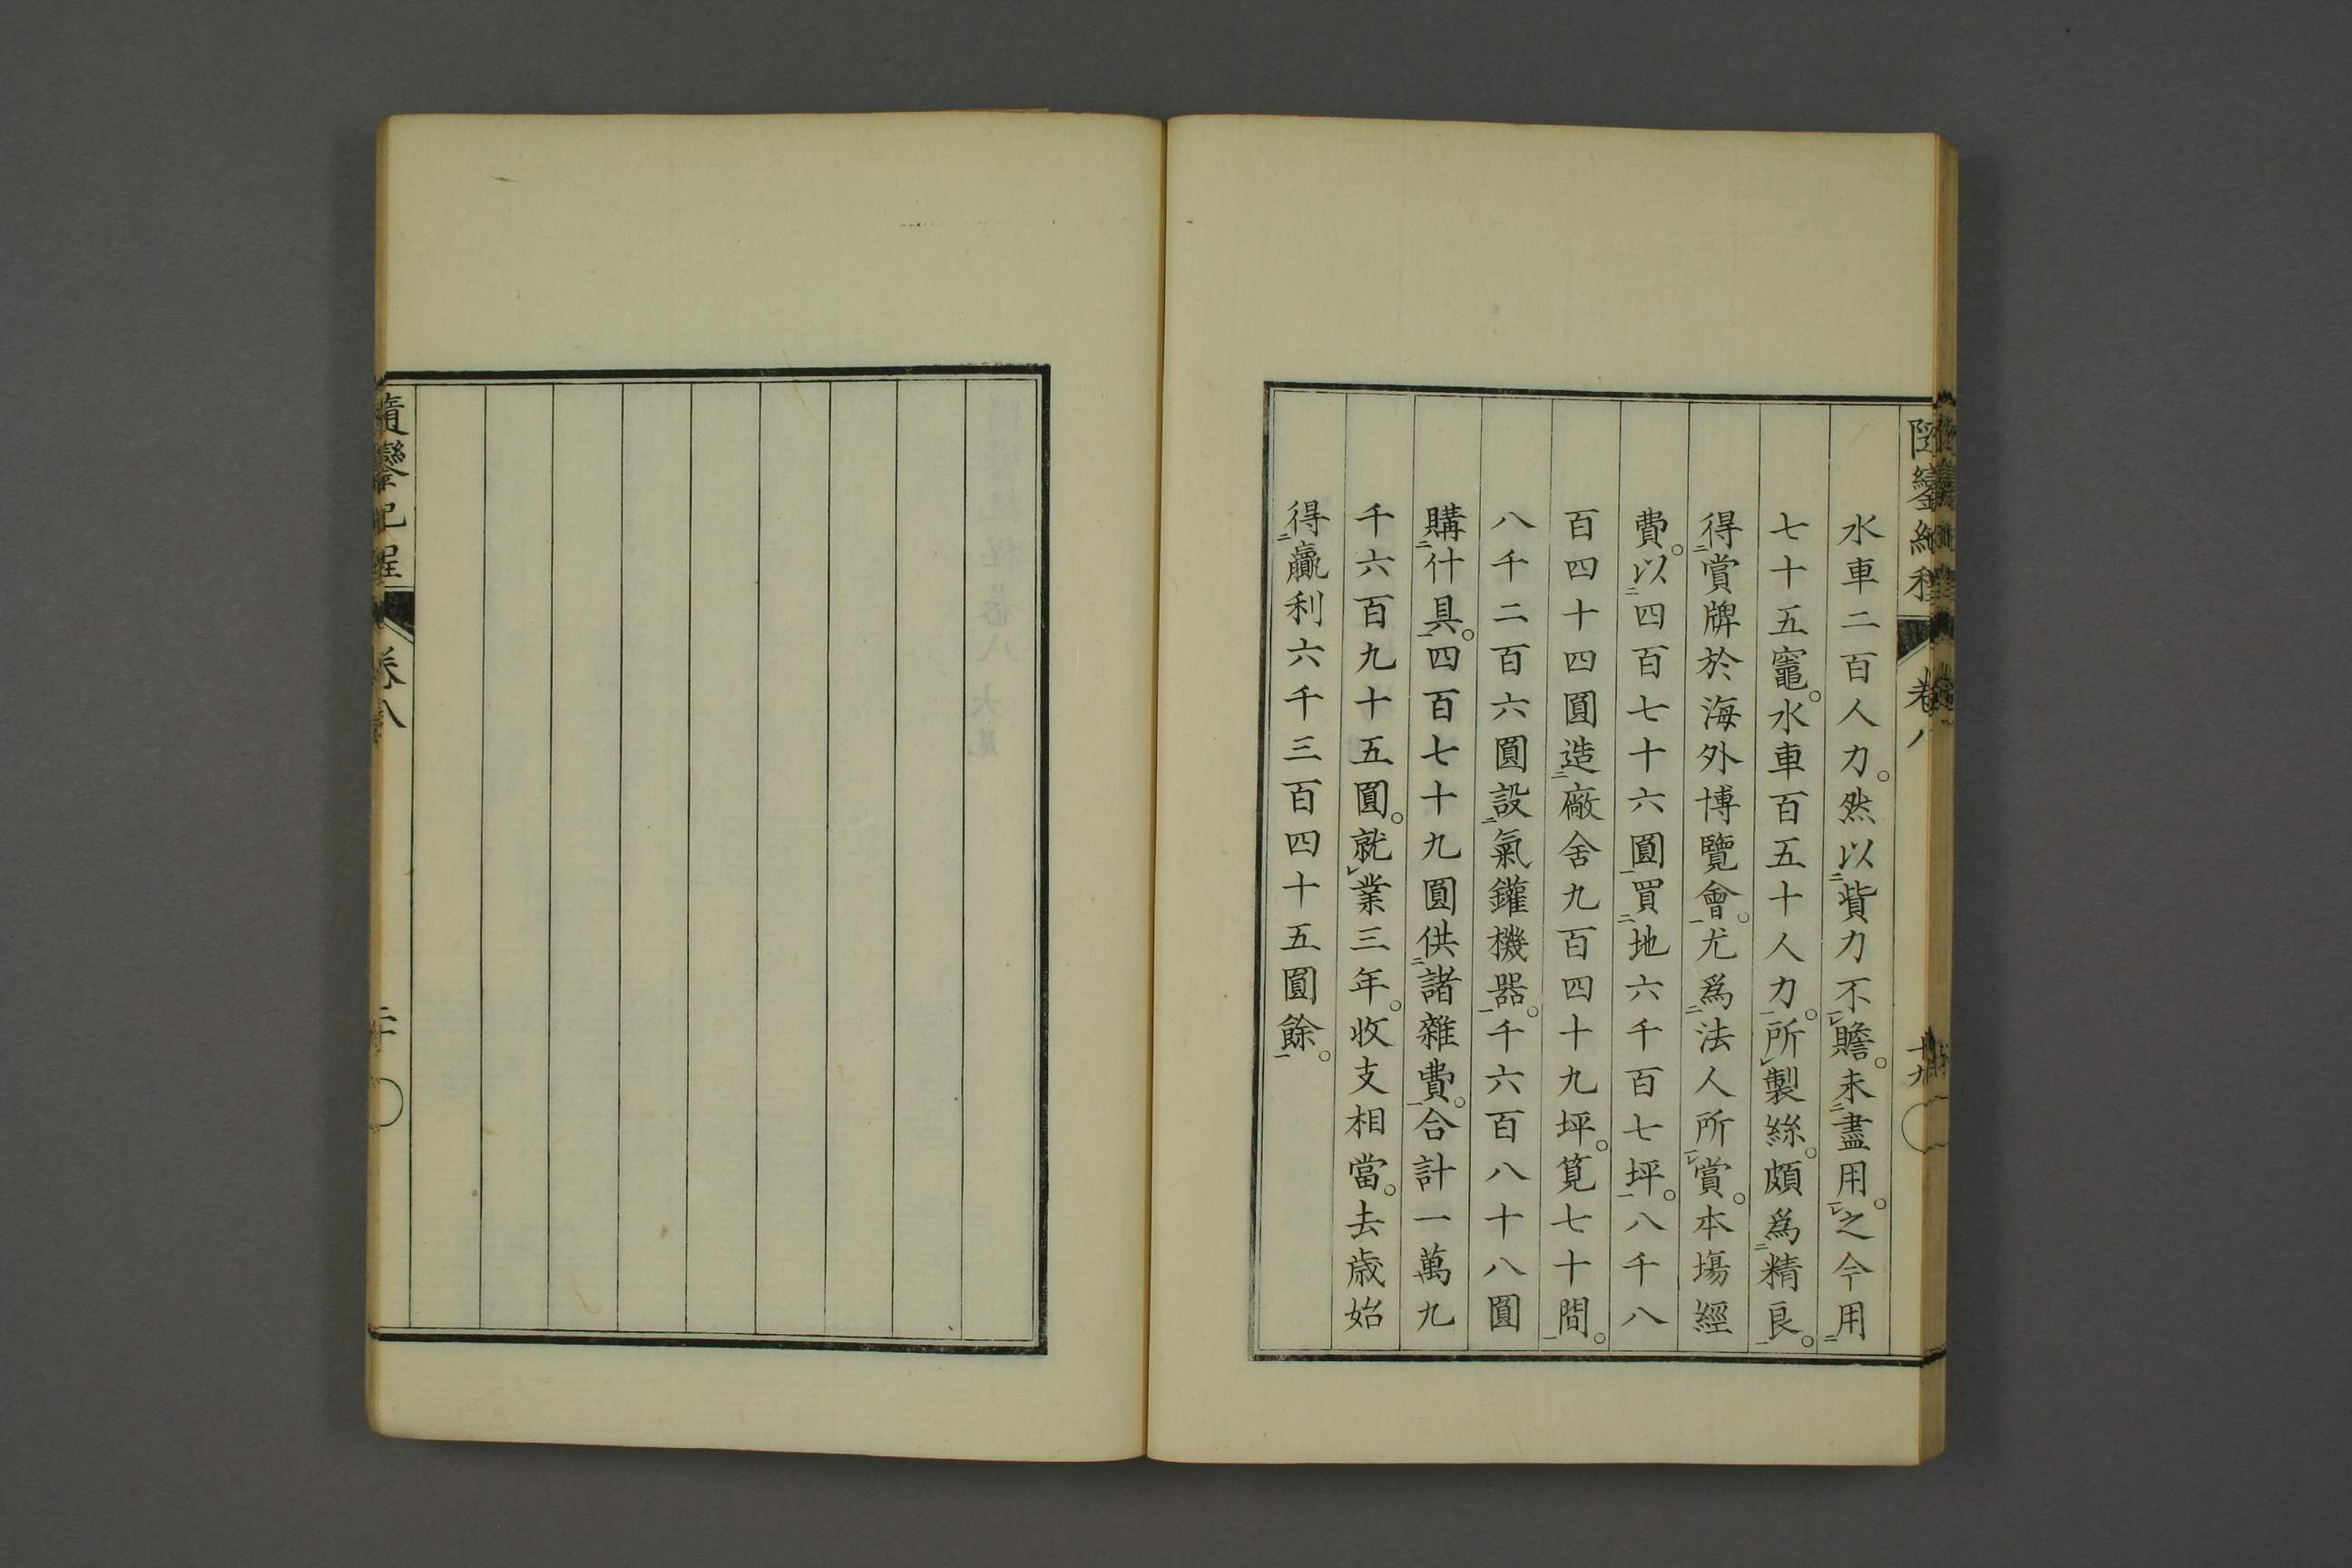 水車二百人力。然以貲力不贍。未盡用。之今用
七十五竈。水車百五十人力。所製絲。頗爲精良。
得賞牌於海外博覽會。尤爲法人所賞。本塲經
費。以四百七十六圓買地六千百七坪。八千八
百四十四圓造廠舍九百四十九坪。筧七十間。
八千二百六圓設氣鑵機器。千六百八十八圓
購什具。四百七十九圓供諸雜費。合計一萬九
千六百九十五圓。就業三年。收支相當。去歲始
得贏利六千三百四十五圓餘。
隨鑾紀程
卷八
十九
隨鑾紀程
卷八
二十